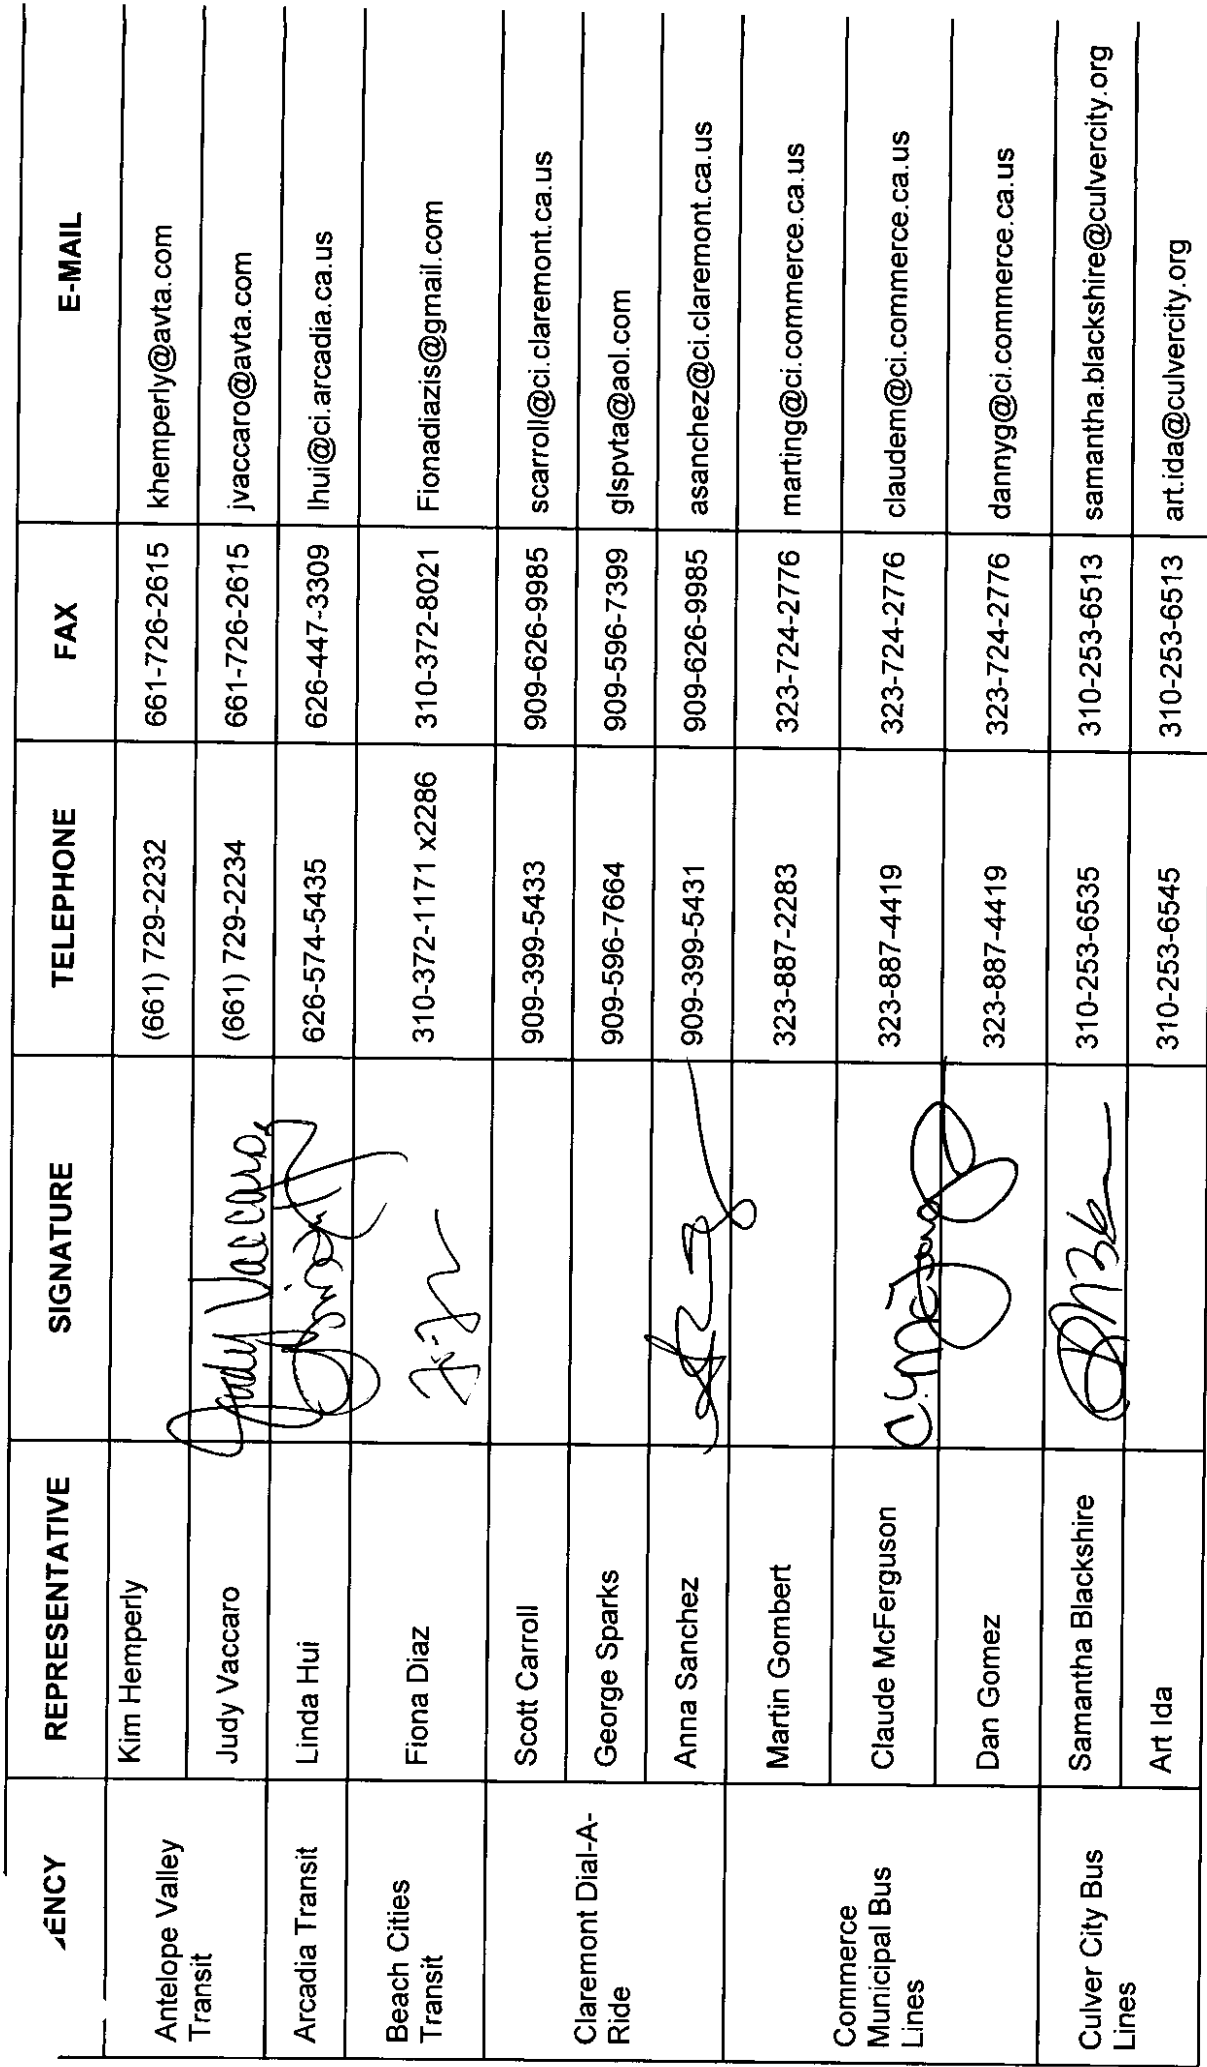 ENCY REPRESENTATIVE SIGNATURE TELEPHONE FAX E-MAIL
Antelope Valley
Transit
Kim Hemperly (661) 729-2232 661-726-2615 khemperly@avta.com
Judy Vaccaro Judy Vaccaro (661) 729-2234 661-726-2615 jvaccaro@avta.com
Arcadia Transit Linda Hui 626-574-5435 626-447-3309 lhui@ci.arcadia.ca.us
Beach Cities
Transit
Fiona Diaz 310-372-1171 x2286 310-372-8021 Fionadiazis@gmail.com
Claremont Dial-A-
Ride
Scott Carroll 909-399-5433 909-626-9985 scarroll@ci.claremont.ca.us
George Sparks 909-596-7664 909-596-7399 glspvta@aol.com
Anna Sanchez 909-399-5431 909-626-9985 asanchez@ci.claremont.ca.us
Commerce
Municipal Bus
Lines
Martin Gombert 323-887-2283 323-724-2776 marting@ci.commerce.ca.us
Claude McFerguson 323-887-4419 323-724-2776 claudem@ci.commerce.ca.us
Dan Gomez 323-887-4419 323-724-2776 dannyg@ci.commerce.ca.us
Culver City Bus
Lines
Samantha Blackshire 310-253-6535 310-253-6513 samantha.blackshire@culvercity.org
Art Ida 310-253-6545 310-253-6513 art.ida@culvercity.org